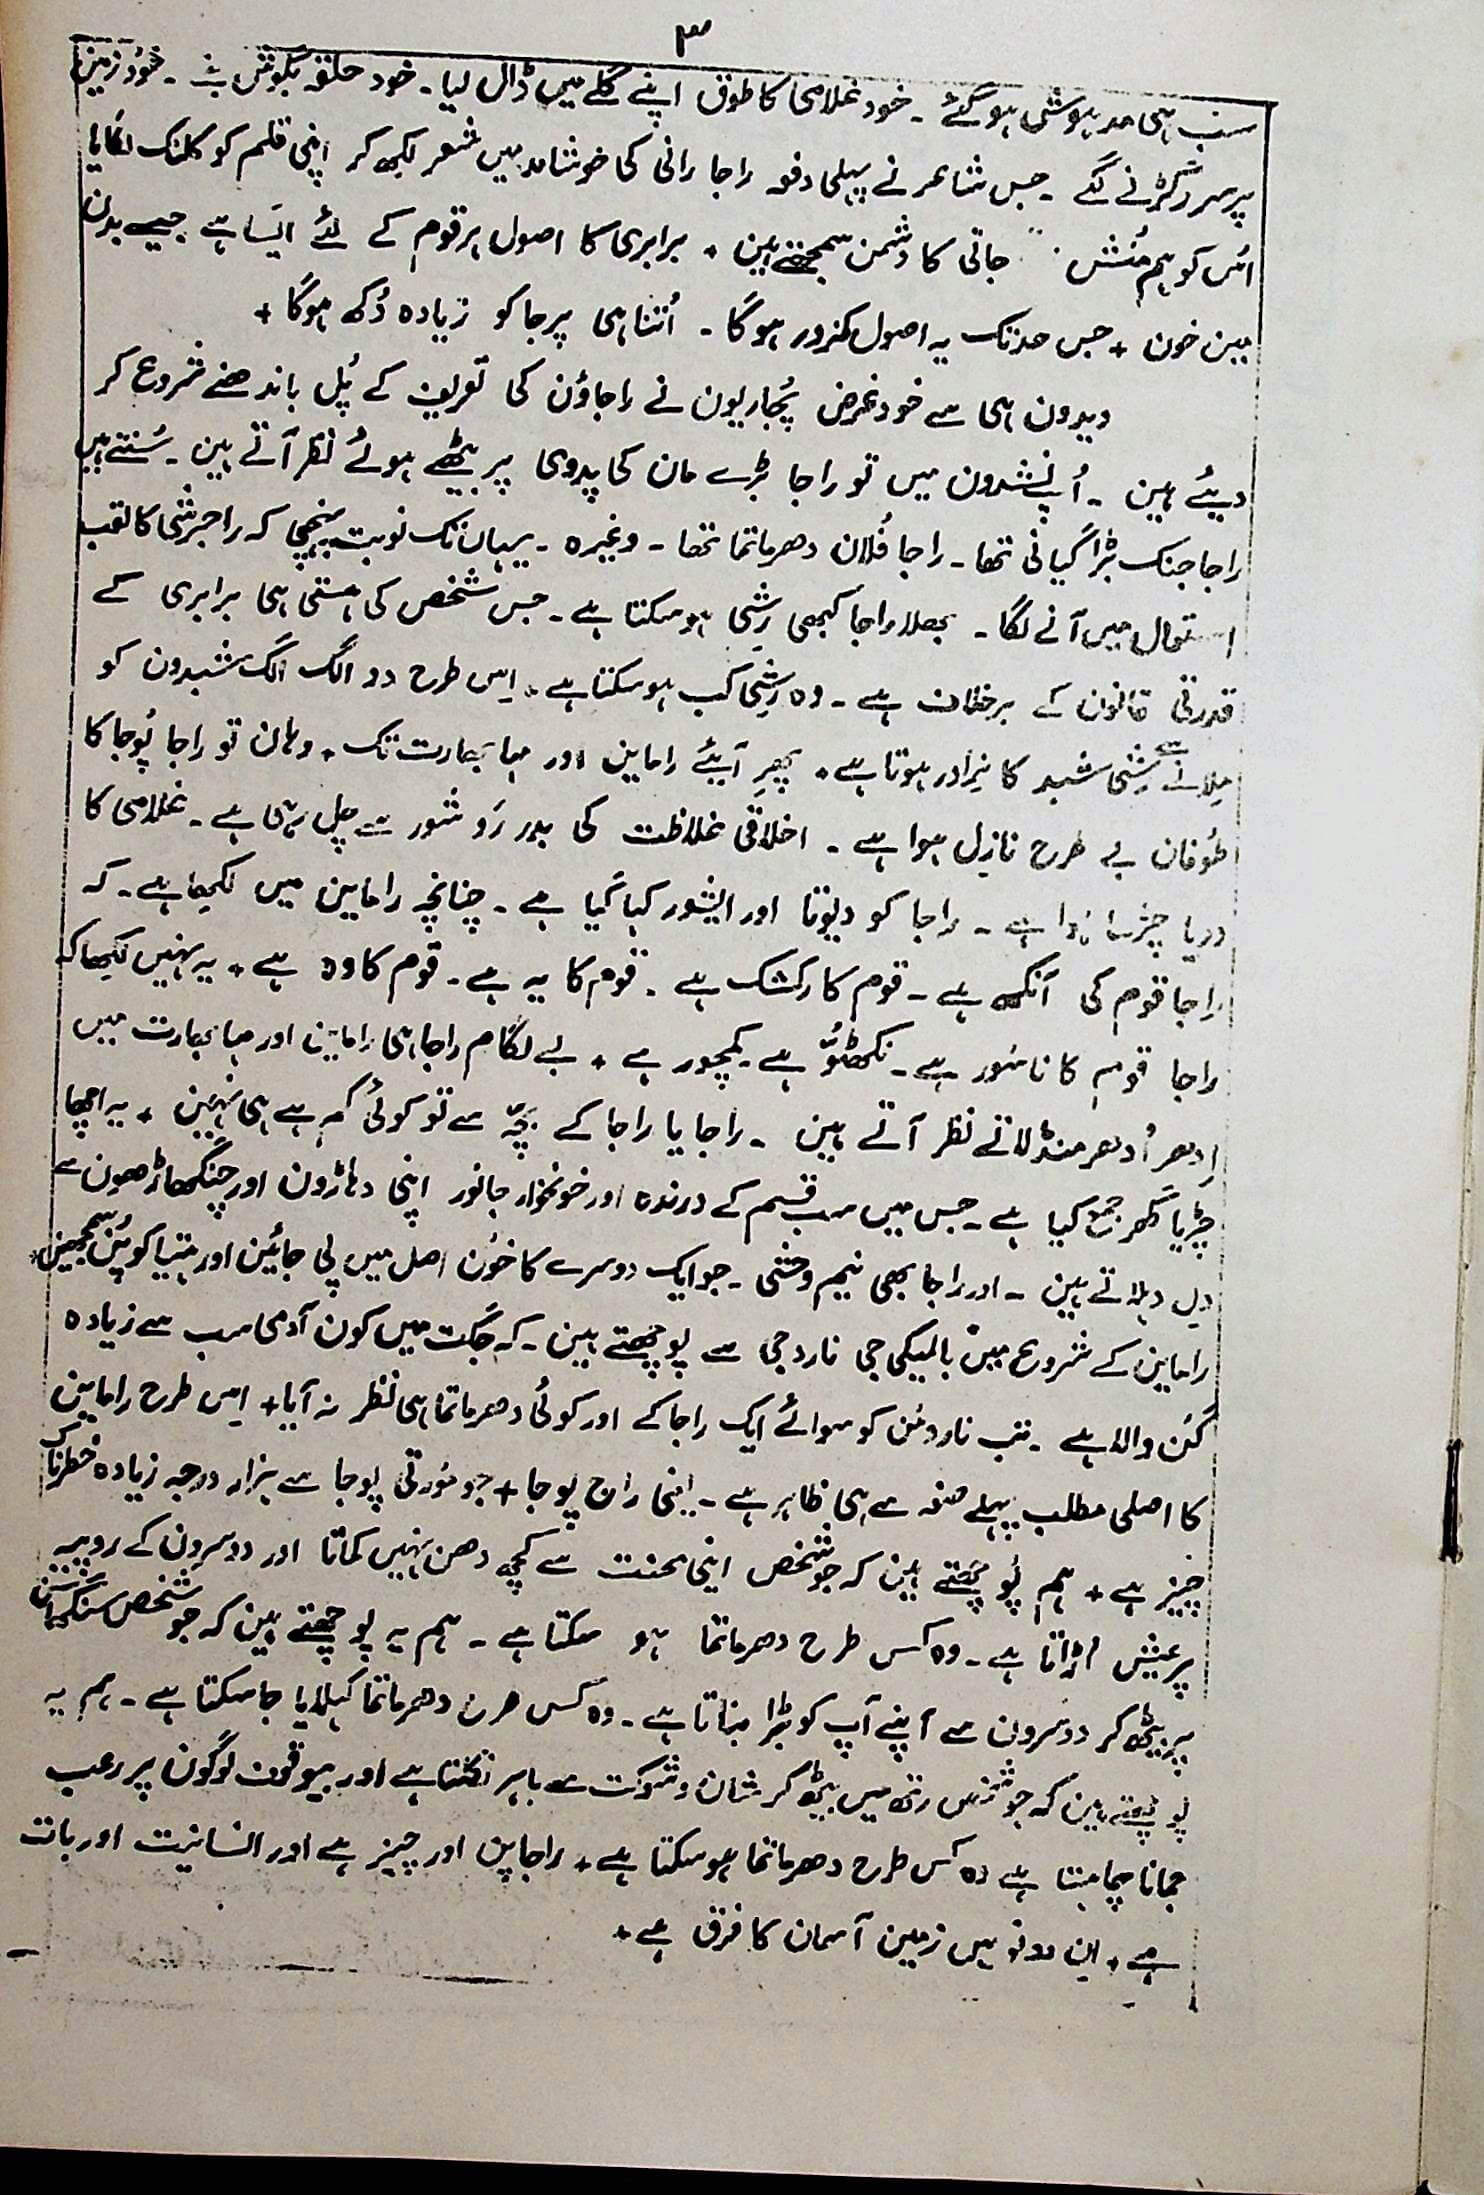 ۳
سب ہی مدہوشی ہو گئے ۔ خود غلامی کا طوق اپنے گلے میں ڈال لیا ۔ خود حلقہ بگوش بنے ۔ خود زمین
پر سر رگڑنے لگے ۔ جس شاعر نے پہلی دفعہ راجا رانی کی خوشامد میں شعر لکھ کر اپنی قلم کو کلنک لگایا
اُس کو ہم مُنش جاتی کا دشمن سمجھتے ہین ٭ برابری کا اصول ہر قوم کے لئے ایسا ہے جیسے بدن
مین خون ٭ جس حد تک یہ اصول کمزور ہوگا ۔ اُتنا ہی پرجا کو زیادہ دُکھ ہوگا ٭
ویدون ہی سے خود غرض پُجاریون نے راجاؤن کی تعریف کے پُل باندھنے شروع کر
دیئے ہین ۔ اُپنشدون میں تو راجا بڑے مان کی پدوی پر بیٹھے ہوئے نظر آتے ہین ۔ سُنتے ہیں
راجا جنک بڑا گیانی تھا ۔ راجا فُلان دھرماتما تھا ۔ وغیرہ ۔ یہان تک نوبت پہنچی کہ راجرشی کا لقب
استعمال میں آنے لگا ۔ بھلا راجا کبھی رِشی ہو سکتا ہے ۔ جس شخص کی ہستی ہی برابری کے
قدرتی قانون کے برخلاف ہے ۔ وہ رِشی کب ہو سکتا ہے ٭ اِس طرح دو الگ الگ شبدون کو
مِلانے سے رِشی شبد کا نرادر ہوتا ہے ٭ پھر آیئے راماین اور مہابھارت تک ٭ وہان تو راجا پُوجا کا
طوفان بے طرح نازِل ہوا ہے ۔ اخلاقی غلاظت کی بدررَو شور سے چل رہی ہے ۔ غلامی کا
دریا چڑھا ہوا ہے ۔ راجا کو دیوتا اور ایشور کہا گیا ہے ۔ چنانچہ راماین میں لکھا ہے ۔ کہ
راجا قوم کی آنکھ ہے ۔ قوم کا رکشک ہے ۔ قوم کا یہ ہے ۔ قوم کا وہ ہے ٭ یہ نہیں لکھا کہ
راجا قوم کا ناسُور ہے ۔ نکھٹُو ہے ۔ کمچور ہے ٭ بے لگام راجا ہی راماین اور مہابھارت میں
اِدھر اُدھر منڈلاتے نظر آتے ہین ۔ راجا یا راجا کے بچّہ سے تو کوئی کم ہے ہی نہین ٭ یہ اچھا
چڑیا گھر جمع کیا ہے ۔ جس میں سب قسم کے درندہ اور خونخوار جانور اپنی دہاڑون اور چنگھاڑون سے
دِل دہلاتے ہین ۔ اور راجا بھی نیم وحشی ۔ جو ایک دوسرے کا خُون اصل میں پی جائین اور ہتیا کو پُن سمجھین ٭
راماین کے شروع مین بالمیکی جی نارد جی سے پوچھتے ہین ۔ کہ جگت میں کون آدمی سب سے زیادہ
گُن والا ہے ۔ تب نارد مُن کو سوائے ایک راجا کے اور کوئی دھرماتما ہی نظر نہ آیا ٭ اِس طرح راماین
کا اصلی مطلب پہلے صفحہ سے ہی ظاہر ہے ۔ یعنی راج پوجا ٭ جو مُورتی پوجا سے ہزار درجہ زیادہ خطرناک
چیز ہے ٭ ہم پُوچھتے ہین کہ جو شخص اپنی محنت سے کچھ دھن نہیں کماتا اور دوسرون کے روپیہ
پر عیش اُڑاتا ہے ۔ وہ کس طرح دھرماتما ہو سکتا ہے ۔ ہم یہ پوچھتے ہین کہ جو شخص سنگھاسن
پر بیٹھ کر دوسرون سے اپنے آپ کو بڑا بناتا ہے ۔ وہ کس طرح دھرماتما کہلایا جا سکتا ہے ۔ ہم یہ
پوچھتے ہین کہ جو شخص رتھ میں بیٹھ کر شان و شوکت سے باہر نکلتا ہے اور بیوقوف لوگون پر رعب
جمانا چاہتا ہے وہ کس طرح دھرماتما ہو سکتا ہے ٭ راجاپن اور چیز ہے اور انسانیت اور بات
ہے ٭ اِن دونو میں زمین آسمان کا فرق ہے ٭